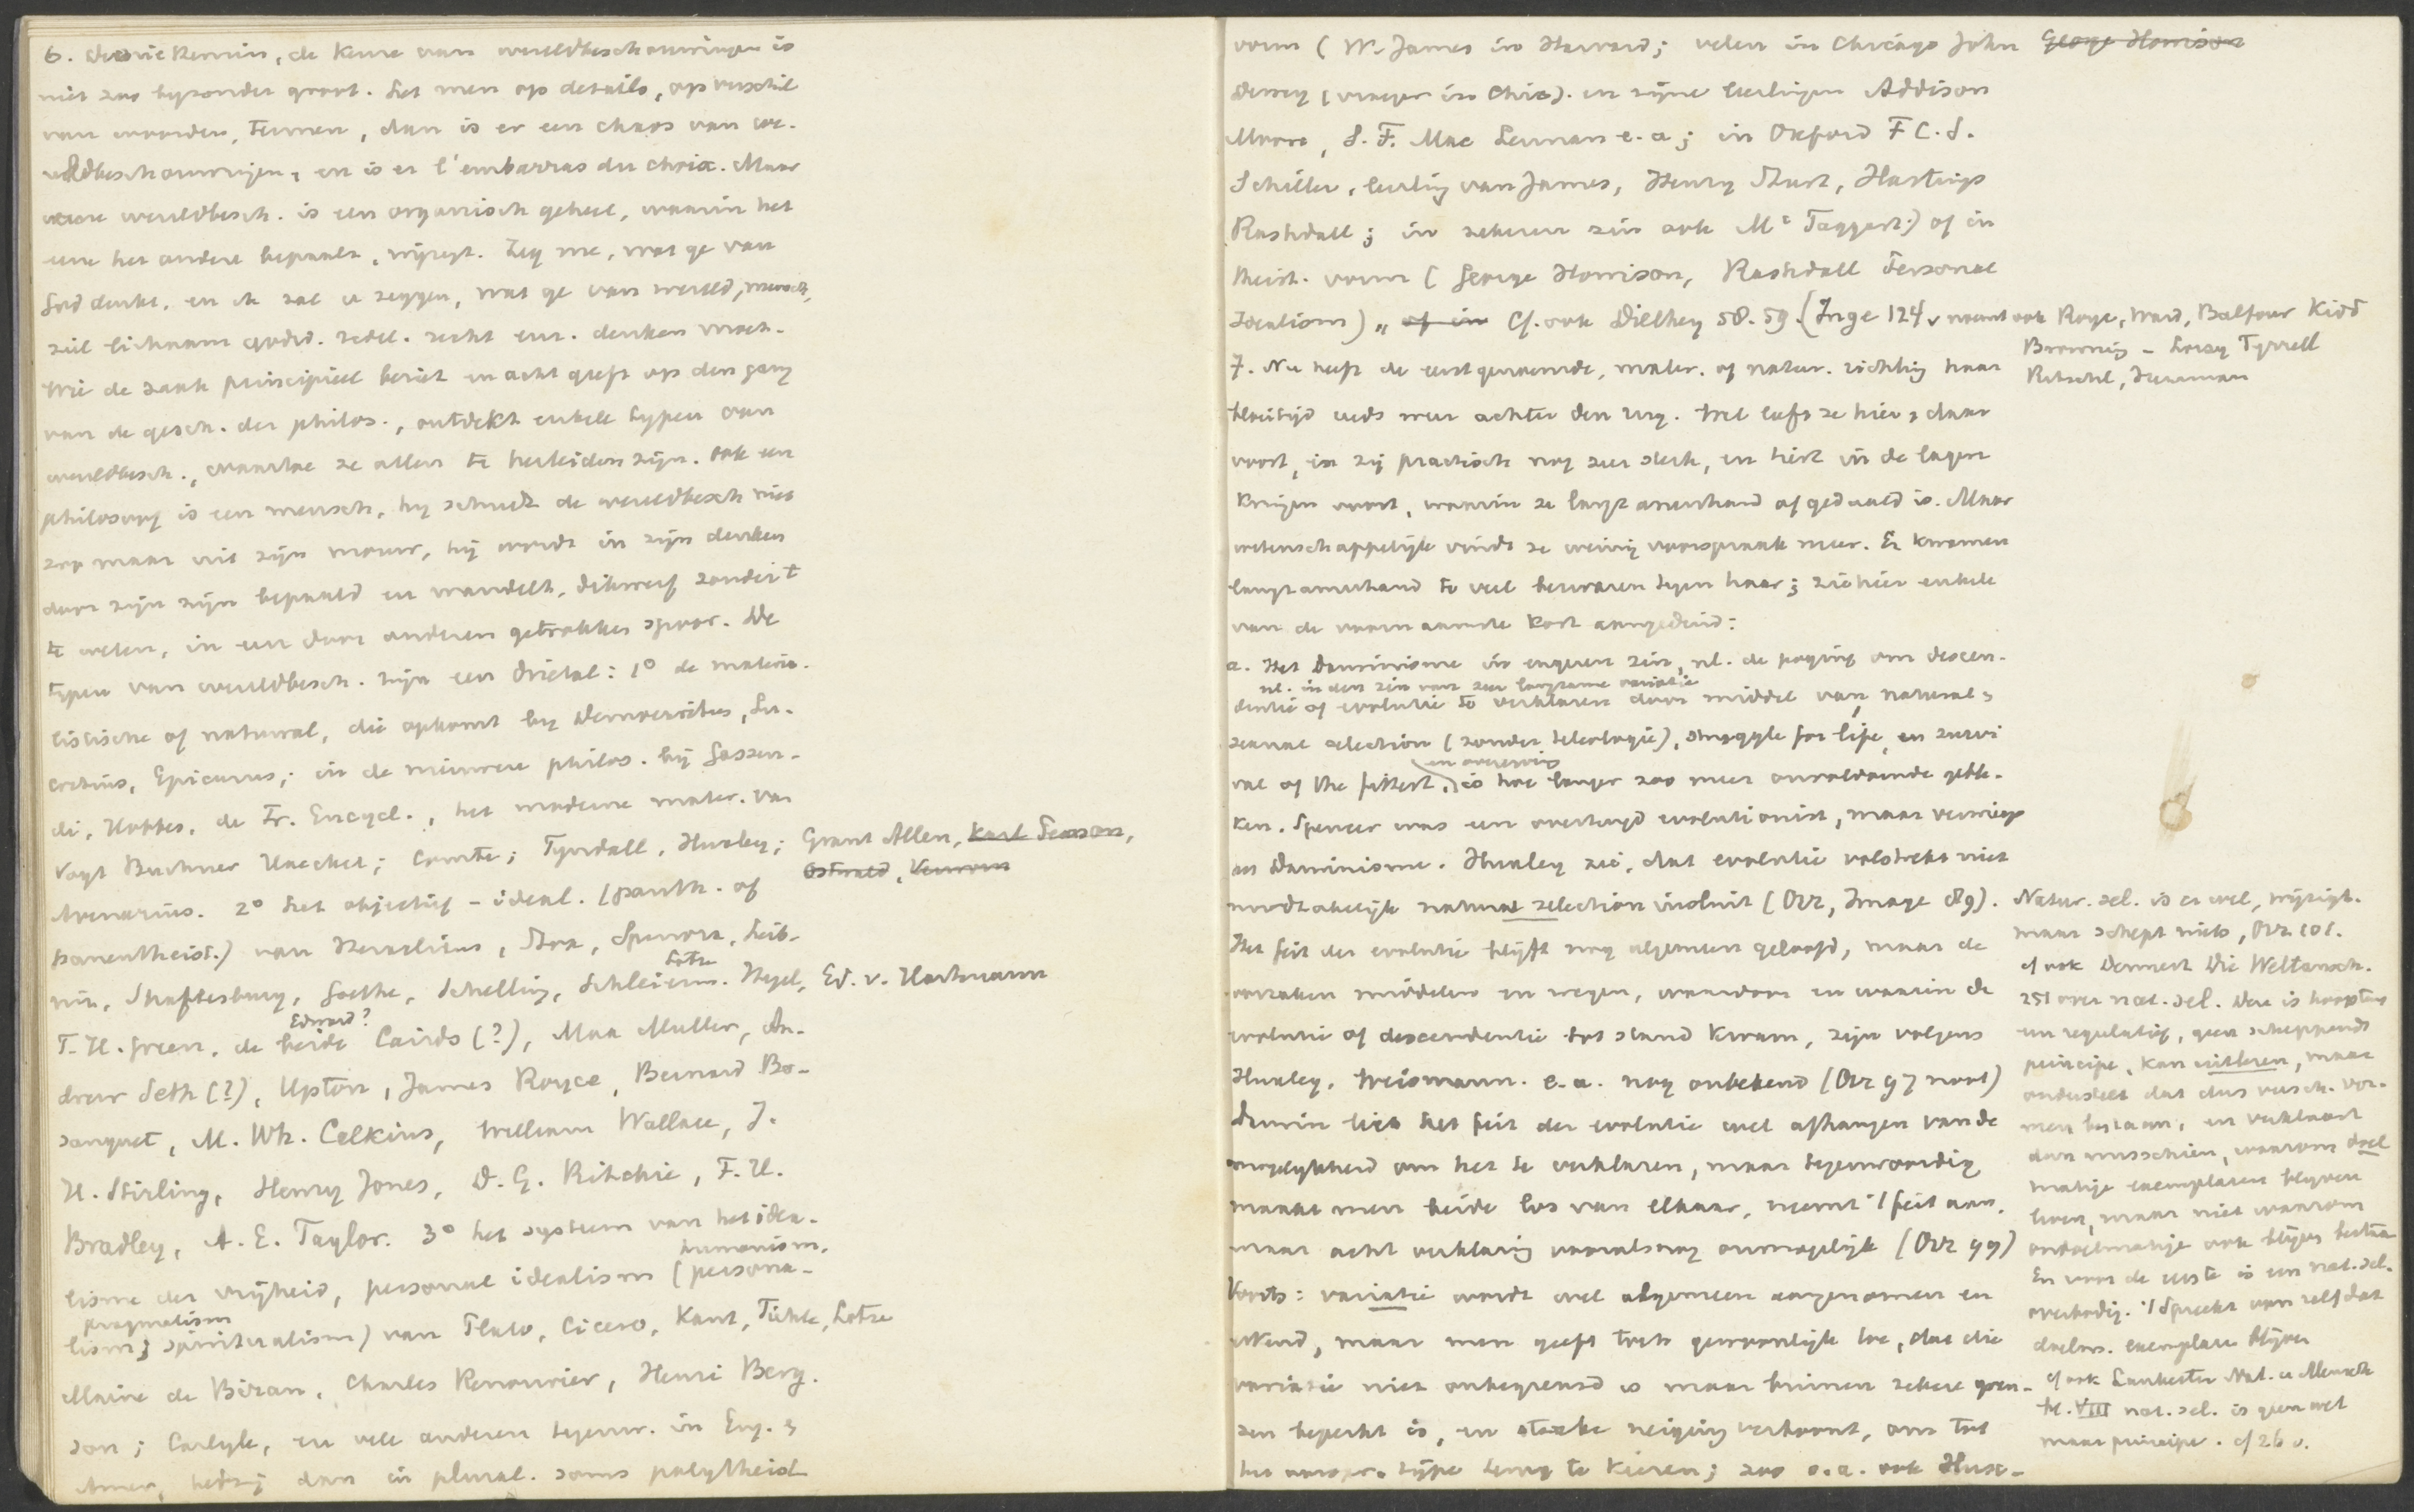 6. de keuze van wereldbeschouwingen is
niet zoo byzonder groot. Let men op details, op verschil
van woorden, termen, dan is er een chaos van we-
reldbeschouwingen, en is er l'embarras du choix. Maar
ware wereldbesch. is een organisch geheel, waarin het
eene het andere bepaalt, wijzigt. Zeg me, wat ge van
God denkt, en ik zal u zeggen, wat ge van wereld, mensch,
ziel lichaam godsd. zedel. recht enz. denken moet.
Wie de zaak principieel beziet en acht geeft op den gang
van de gesch. der philos., ontdekt enkele typen van
wereldbesch., waartoe ze allen te herleiden zijn. Ook een
philosoof is een mensch, hy schudt de wereldbesch niet
zoo maar uit zijn mouw, hij wordt in zijn denken
door zijn zijn bepaald en wandelt, dikwerf zonder 't
te weten, in een door anderen getrokken spoor. De
typen van wereldbesch. zijn een drietal: 1º de materia-
listische of natural, die opkomt by Democritus, Lu-
cretius, Epicurus; in de nieuwere philos. bij Gassen-
di, Hobbes, de Fr. Encycl., het moderne mater. van
Vogt Buchner Haeckel; Comte; Tyndall, Huxley; Grant Allen, Karl Pearson,
Ostwald, Verworn
Avenarius. 2º het objectief-ideal. (panth. of
panentheist.) van Heraclitus, Stoa, Spinoza, Leib-
Lotze
niz, Shaftesbury, Goethe, Schelling, Schleierm. Hegel, Ed. v. Hartmann
Edward?
T. H. Green, de beide Cairds (?), Max Muller, An-
drew Seth (?), Upton, James Royce, Bernard Bo-
sanquet, M. Wh. Calkins, William Wallace, J.
H. Stirling, Henry Jones, D. G. Ritchie, F. H.
Bradley, A. E. Taylor. 3º het systeem van het idea-
humanism.
lisme der vrijheid, personal idealism (persona-
pragmatism
lism; spiritualism) van Plato, Cicero, Kant, Fichte, Lotze
Maine de Biran, Charles Renouvier, Henri Berg-
son; Carlyle, en vele anderen tegenw. in Eng. &
Amer, hetzij dan in plural. soms polytheist
vorm (W. James in Harvard; velen in Chicago John George Howison
Dewey (vroeger in Chic). en zijne leerlingen Addison
Moore, S. F. Mac Lennan e. a; in Oxford F C. S.
Schiller, leerling van James, Henry Sturt, Hastings
Rashdall; in zekeren zin ook Mc Taggert) of in
theist. vorm (George Howison, Rashdall Personal
Idealism) „ of in Cf. ook Dilthey 58. 59. (Inge 124 noemt ook Royce, Ward, Balfour Kidd
Browning - Loisy Tyrrell
Ritschl, Herrman
7. Nu heeft de eerstgenoemde, mater. of natur. richting haar
bloeitijd reeds weer achter den rug. Wel leeft ze hier & daar
voort, is zij practisch nog zeer sterk, en hierst in de lagere
kringen voort, waarin ze langzamerhand afgedaald is. Maar
wetenschappelijk vindt ze weinig voorspraak meer. Er kwamen
langzamerhand te veel bezwaren tegen haar; ziehier enkele
van de voornaamste kort aangeduid:
a. Het Darwinisme in engeren zin, nl. de poging om descen-
nl. in den zin van zeer langzame variatie
dentie of evolutie te verklaren door middel van natural &
sexual selection (zonder teleologie), struggle for life, en survi
en overerving
val of the fittest, is hoe langer zoo meer onvoldoende geble-
ken. Spencer was een overtuigd evolutionist, maar verwierp
en Darwinisme. Huxley zei, dat evolutie volstrekt niet
noodzakelijk natural selection insluit (Orr, Image 89).
Het feit der evolutie blijft nog algemeen geloofd, maar de
oorzaken middelen en wegen, waardoor en waarin de
evolutie of descendentie tot stand kwam, zijn volgens
Huxley, Weismann. e. a. nog onbekend (Orr 97 noot)
Darwin liet het feit der evolutie wel afhangen van de
mogelijkheid om het te verklaren, maar tegenwoordig
maakt men beide los van elkaar, neemt 't feit aan,
maar acht verklaring vooralsnog onmogelijk (Orr 99)
Voorts: variatie wordt wel algemeen aangenomen en
erkend, maar men geeft toch gewoonlijk toe, dat die
variatie niet onbegrensd is maar binnen zekere gren-
zen beperkt is, en sterke neiging vertoont, om tot
het oorspr. type terug te keeren; zoo o.a. ook Hux-
Natur. sel. is er wel, wijzigt.
maar schept niets, Orr 101.
cf ook Dennert Die Weltansch.
251 over nat. sel. Deze is hoogstens
een regulatief, geen scheppend
principe, kan uitlezen, maar
onderstelt dat dus versch. vor-
men bestaan, en verklaart
dan misschien, waarom doel
matige exemplaren blyven
leven, maar niet waarom
ondoelmatige ook blijven bestaa
En voor de eerste is een nat. sel.
overbodig. 't Spreekt van zelf dat
doelm. exemplare blijven
cf ook Lankester Nat. u Mensch
bl. VIII nat. sel. is geen wet
maar principe. cf 26 v.